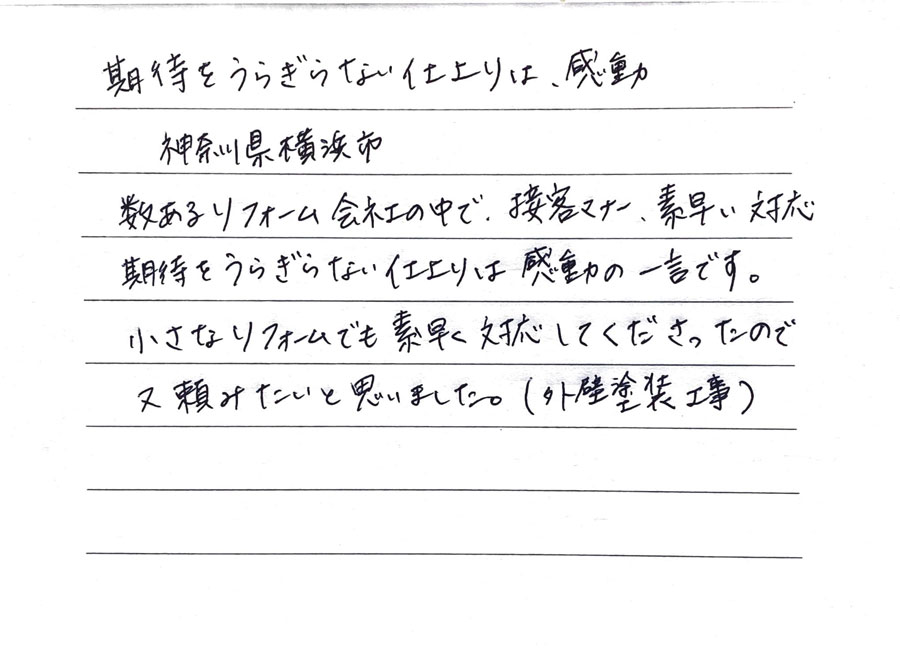 期待をうらぎらない仕上りは、感動
神奈川県横浜市
数あるリフォーム会社の中で、接客マナー、素早い対応
期待をうらぎらない仕上りは感動の一言です。
小さなリフォームでも素早く対応してくださったので
又頼みたいと思いました。(外壁塗装工事)